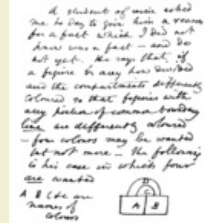 A student of mine asked
me to day to give him a reason
for a fact which I did not
know was a fact – and do
not yet. He says that if
a figure be any how divided
and the compartments differently
coloured so that figures with
any portion of common boundary
line are differently coloured
– four colours may be wanted
but not more – the following
is his case in which four
are wanted
A B C &c are
names of
colours
A B